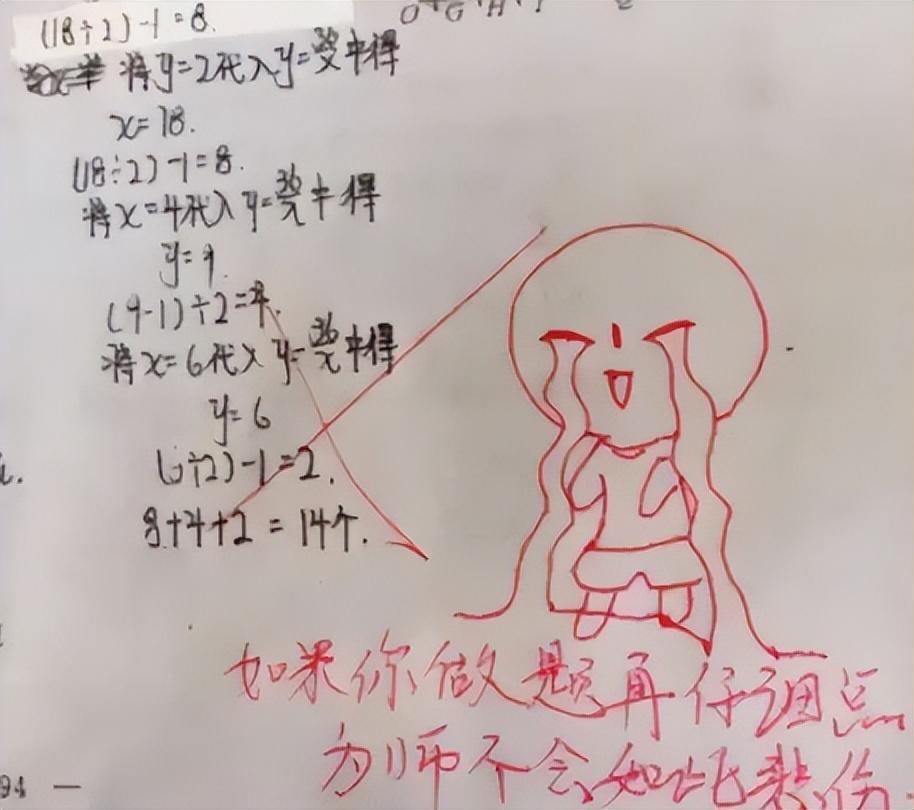 (18÷2)-1=8.
将y=2代入y=36/x中得
x=18.
(18÷2)-1=8.
将x=4代入y=36/x中得
y=9.
(9-1)÷2=4.
将x=6代入y=36/x中得
y=6
(6÷2)-1=2.
8+4+2=14个.
如果你做题再仔细点
为师不会如此悲伤.
94 —